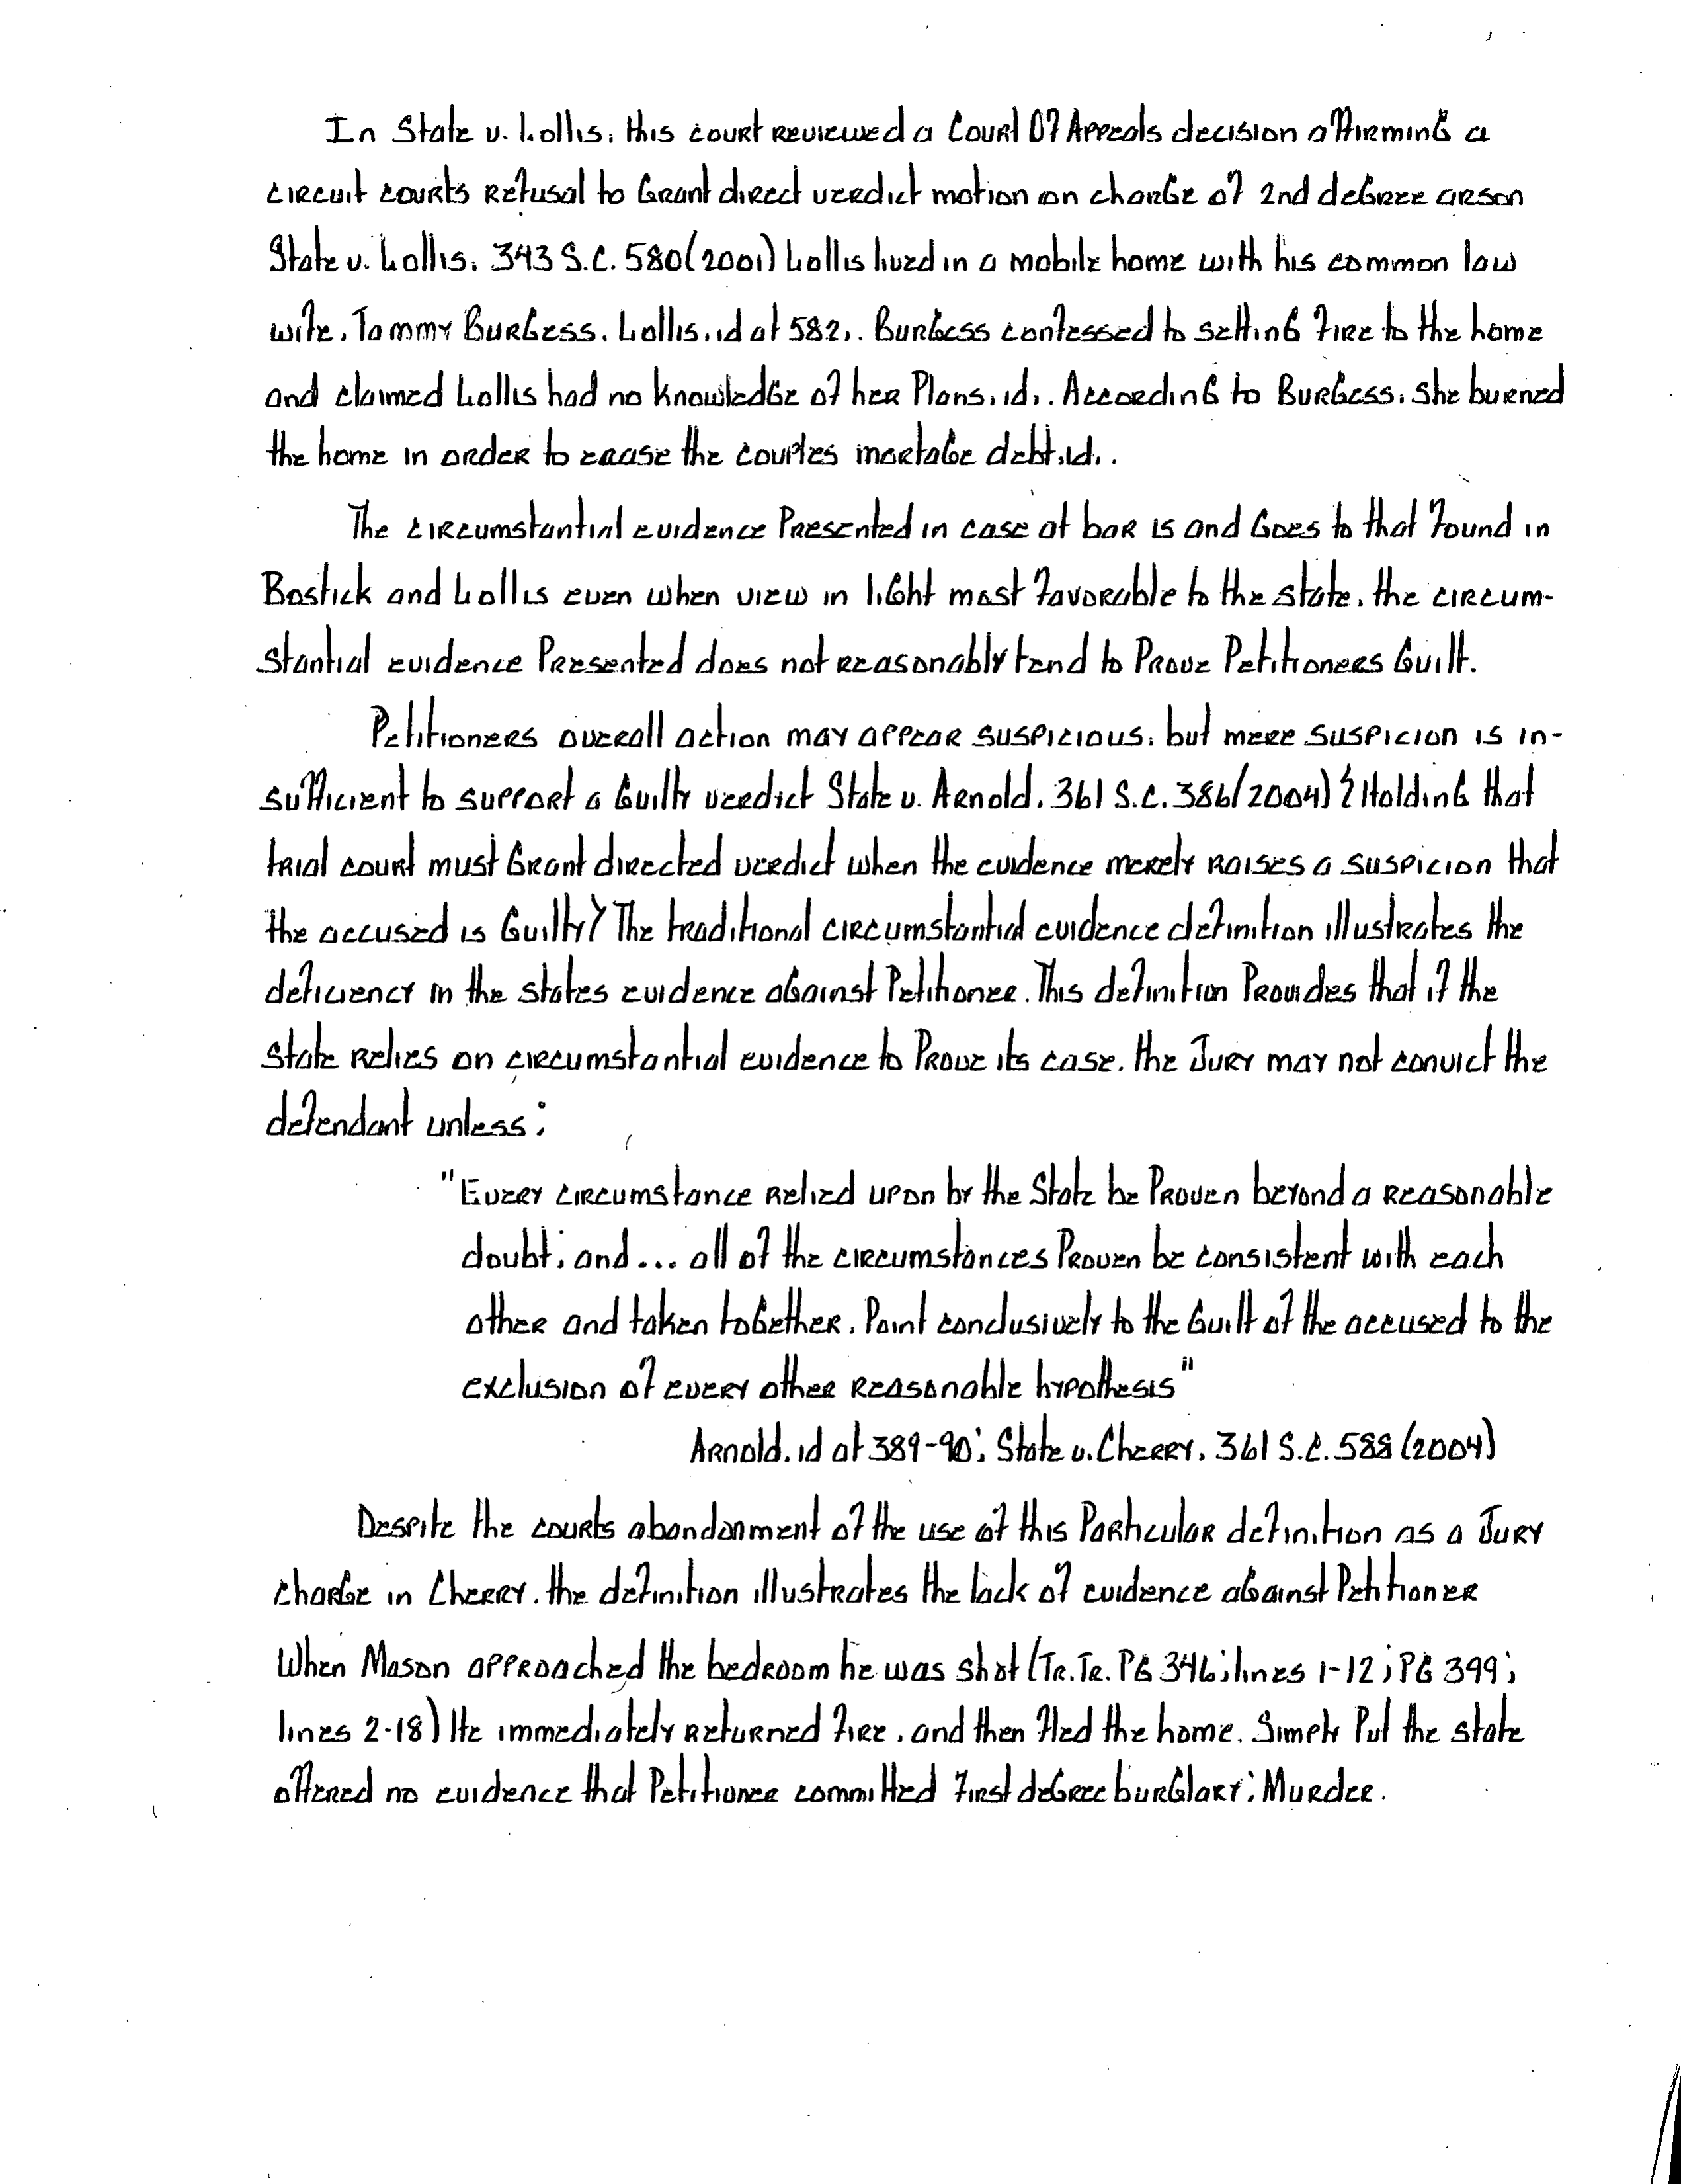 In State v. Lollis, this court reviewed a Court Of Appeals decision affirming a
circuit courts refusal to Grant direct verdict motion on charge of 2nd degree arson
State v. Lollis, 343 S.C. 580(2001) Lollis lived in a mobile home with his common law
wife, Tammy Burgess. Lollis, id at 582,. Burgess confessed to setting fire to the home
and claimed Lollis had no knowledge of her Plans, id,. According to Burgess, she burned
the home in order to erase the couples mortage debt.id,.
The circumstantial evidence Presented in case at bar is and Goes to that found in
Bostick and Lollis even when view in light most favorable to the state, the circum-
stantial evidence Presented does not reasonably tend to Prove Petitioners Guilt.
Petitioners overall action may appear suspicious, but mere suspicion is in-
sufficient to support a Guilty verdict State v. Arnold, 361 S.C. 386(2004) { Holding that
trial court must Grant directed verdict when the evidence merely raises a suspicion that
the accused is Guilty} The traditional circumstantial evidence definition illustrates the
deficiency in the states evidence against Petitioner. This definition Provides that if the
State relies on circumstantial evidence to Prove its case, the Jury may not convict the
defendant unless:
"Every circumstance relied upon by the State be Proven beyond a reasonable
doubt; and... all of the circumstances Proven be consistent with each
other and taken together, Point conclusively to the Guilt of the accused to the
exclusion of every other reasonable hypothesis"
Arnold, id at 389-90; State v. Cherry, 361 S.C. 588 (2004)
Despite the courts abandonment of the use of this Particular definition as a Jury
charge in Cherry, the definition illustrates the lack of evidence against Petitioner
When Mason approached the bedroom he was shot (Tr.Tr. PG 346; lines 1-12; PG 399;
lines 2-18) He immediately returned fire, and then fled the home. Simply Put the state
offered no evidence that Petitioner committed first degree burglary; Murder.